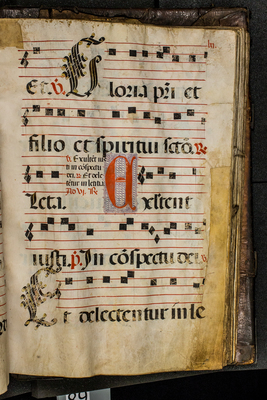 Et. ℣. Gloria pri et
filio et spiritui scto. ℟
℣. Exultent
in conspectu
dei. ℟. Et dele
tentur in letitia
No VI. ℟
Leta. Exltent
iusti. p. In cōspectu dei. ℣.
Et delectentur in le
69